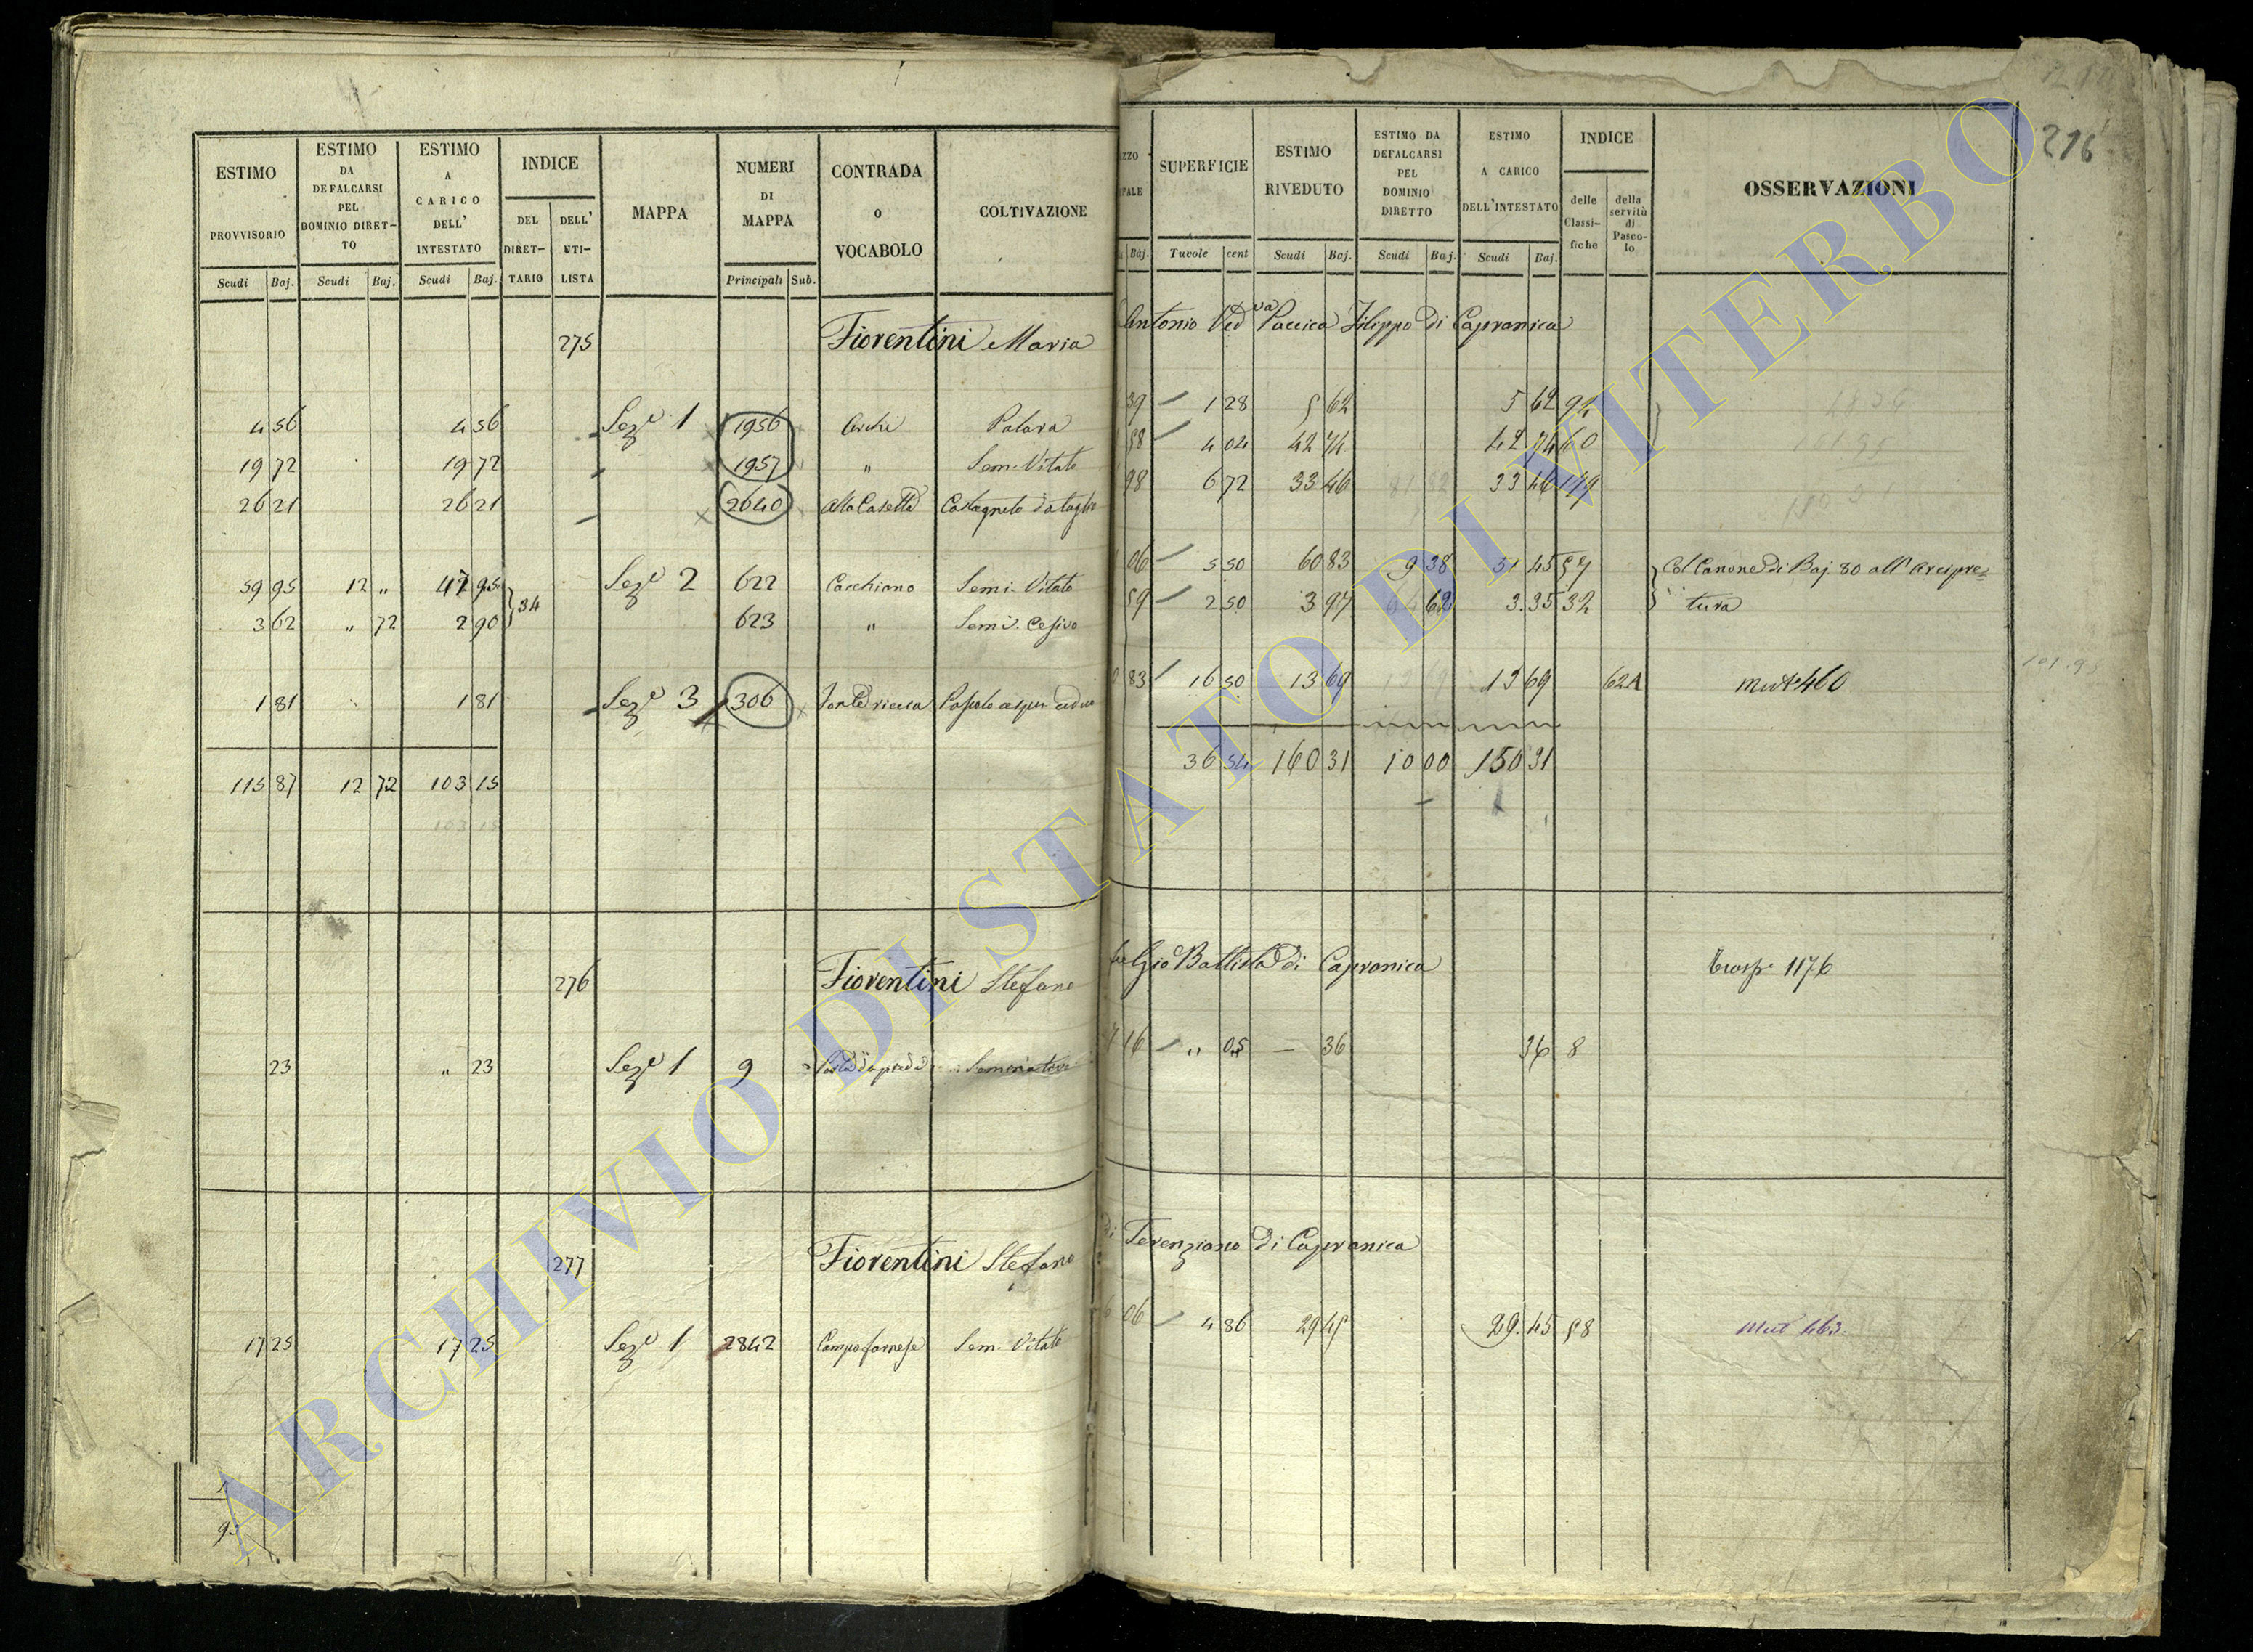 216
ESTIMO PROVVISORIO
ESTIMO DA DEFALCARSI PEL DOMINIO DIRET-TO
ESTIMO A CARICO DELL' INTESTATO
INDICE
DEL DIRET-TARIO
DELL' UTI-LISTA
MAPPA
NUMERI DI MAPPA
CONTRADA O VOCABOLO
COLTIVAZIONE
Scudi Baj. Scudi Baj. Scudi Baj. Principali Sub.
275 Fiorentini Maria
4 56 4 56 Seze 1 1956 Palara
19 72 19 72 1957 " Sem. Vitato
26 21 26 21 2640 Castagneto da taglio
59 95 12 " 47 95 34 Seze 2 622 Cacchiano Semi. Vitato
3 62 " 72 2 90 623 " Semi. Cesivo
1 81 1 81 Seze 3 306
115 87 12 72 103 15
103 15
276 Fiorentini Stefano
23 " 23 Seze 1 9 Seminativo
277 Fiorentini Stefano
17 25 17 25 Seze 1 2842 Campofarnese Sem. Vitato
SUPERFICIE
ESTIMO RIVEDUTO
ESTIMO DA DEFALCARSI PEL DOMINIO DIRETTO
ESTIMO A CARICO DELL'INTESTATO
INDICE
delle Classi-fiche
della servitù di Pasco-lo
OSSERVAZIONI
Baj. Tavole cent Scudi Baj. Scudi Baj. Scudi Baj.
Antonio Ved va Paccica Filippo di Capranica
39 1 28 5 62 5 62 92
58 4 04 42 74 42 74 60
98 6 72 33 46 33 46 119
06 5 50 60 83 9 38 51 45 57 Col Canone di Baj. 80 all'Arcipre=
59 2 50 3 97 62 3.35 32 tura
83 16 50 13 69 13 69 62A mut 460
36 54 160 31 10 00 150 31
Gio Battista di Capranica Trasp. 1176
16 " 05 — 36 36 8
di Terenziano di Capranica
06 4 86 29 45 29.45 58 Mut 463.
ARCHIVIO DI STATO DI VITERBO